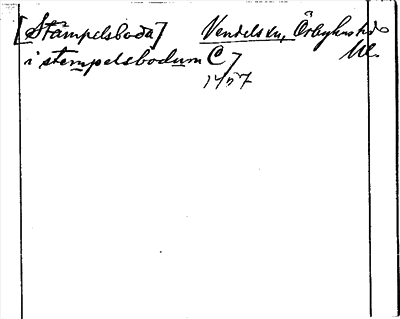 [Stämpelsboda] Vendels sn, Örbyhus hd
Ul.
i stempelsbodum C 7
1457